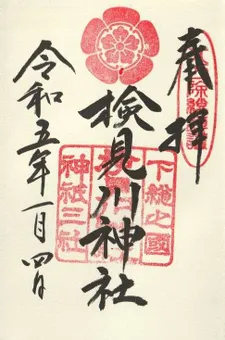 奉拝
検見川神社
下総之國
神祇三社
令和五年一月四日